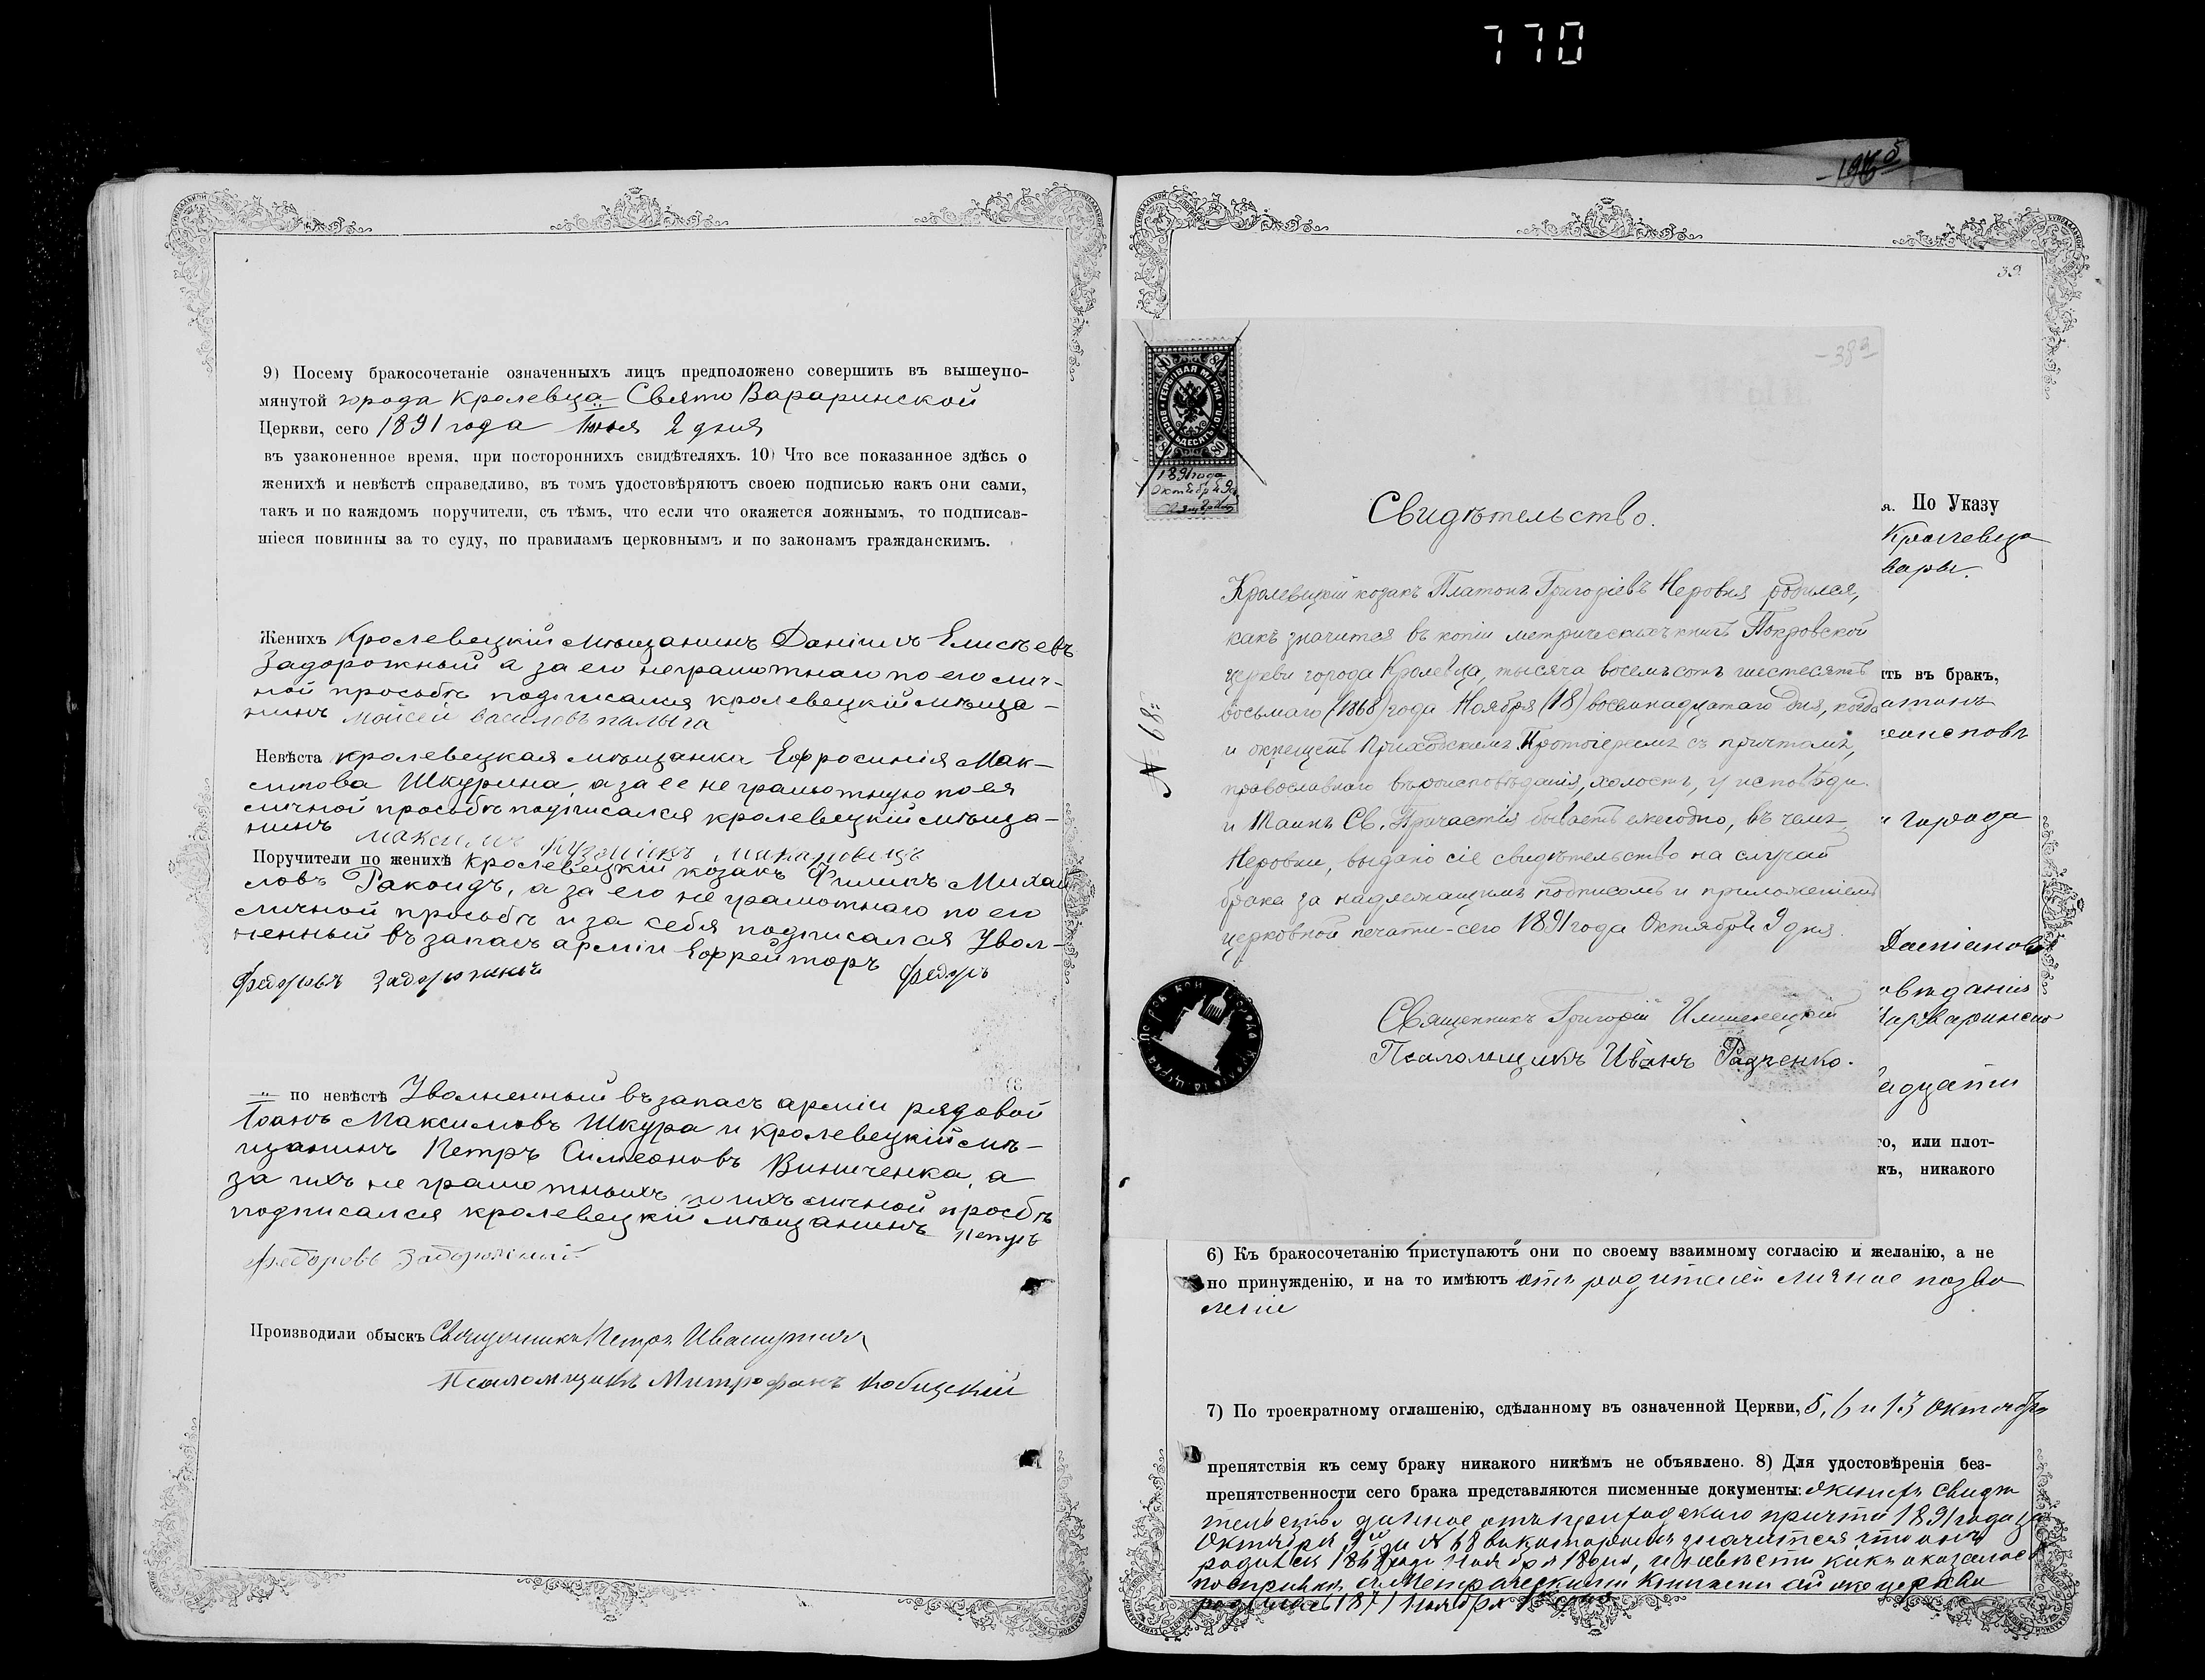 770
196
9) Посему бракосочетаніе означенныхъ лицъ предположено совершить въ вышеупо-
мянутой города Кролевца Свято Варваринской
Церкви, сего 1891 года Іюня 2 дня
въ узаконенное время, при постороннихъ свидѣтеляхъ. 10) Что все показанное здѣсь о
женихѣ и невѣстѣ справедливо, въ томъ удостовѣряютъ своею подписью какъ они сами,
такъ и по каждомъ поручители, съ тѣмъ, что если что окажется ложнымъ, то подписав-
шіеся повинны за то суду, по правиламъ церковнымъ и по законамъ гражданскимъ.
Женихъ Кролевецкій мѣщанинъ Даніилъ Елисѣевъ
Задорожный а за его неграмотнаго по его лич-
ной просьбѣ подписался кролевецкій мѣща-
нинъ Мойсей Василовъ палыга
Невѣста кролевецкая мѣщанка Ефросинія Мак-
симова Шкурина, а за ее не грамотную по ея
личной просьбѣ подписался кролевецкій мѣща-
нинъ Максимъ
Поручители по женихѣ кролевецкій козакъ Филипъ Михай
ловъ Ракоидъ, а за его не грамотнаго по его
личной просьбѣ и за себя подписался Увол-
ненный въ запасъ арміи Ефрейторъ Федоръ
Федоровъ Задорожный
по невѣстѣ Уволненный въ запасъ арміи рядовой
Іоанъ Максимовъ Шкура и кролевецкій мѣ-
щанинъ Петръ Симеоновъ Виниченка, а
за ихъ не грамотныхъ по ихъ личной просбѣ
подписался кролевецкій мѣщанинъ Петръ
Федоровъ Задорожный
Производили обыскъ Священникъ Петръ
Псаломщикъ Митрофанъ
39
383
1891 года
Октября 9
Свидѣтельство.
Кролевецкій козакъ Платонъ Григоріевъ Неровня родился,
какъ значится въ копіи метрическихъ книгъ Покровской
церкви города Кролевца, тысяча восемьсотъ шестесятъ
восьмаго (1868) года Ноября (18) восьмнадцатаго дня, когда
и окрещенъ Приходскимъ Протоіереемъ съ причтомъ,
православнаго вѣроисповѣданія, холостъ, у исповѣди
и Таинъ Св. Причастія бываетъ ежегодно, въ чемъ
Неровни, выдано сіе свидѣтельство на случай
брака за надлежащимъ подписомъ и приложеніемъ
церковной печати - сего 1891 года Октября 9 дня.
№ 68
Священникъ Григорій
Псаломщикъ Иванъ Радченко.
я. По Указу
Кролевца
вары.
ить въ бракъ,
атонъ
города
Даміанова
овѣданія
Варваринской
адцати
го, или плот-
къ, никакого
6) Къ бракосочетанію приступаютъ они по своему взаимному согласію и желанію, а не
по принужденію, и на то имѣютъ отъ родителей личное позво
леніе
7) По троекратному оглашенію, сдѣланному въ означенной Церкви, 5, 6 и 13 Октября
препятствія къ сему браку никакого никѣмъ не объявлено. 8) Для удостовѣренія без-
препятственности сего брака представляются писменные документы: Жениха Свидѣ
тельство данное отъ приходскаго причта 1891 года
Октября 9 за № 68 въ которомъ значится что онъ
родился 1868 года Ноября 18 дня, и невѣсты какъ оказалось
по справкѣ съ Метрическими Книгами сей же церкви
родилась 1871 Ноября